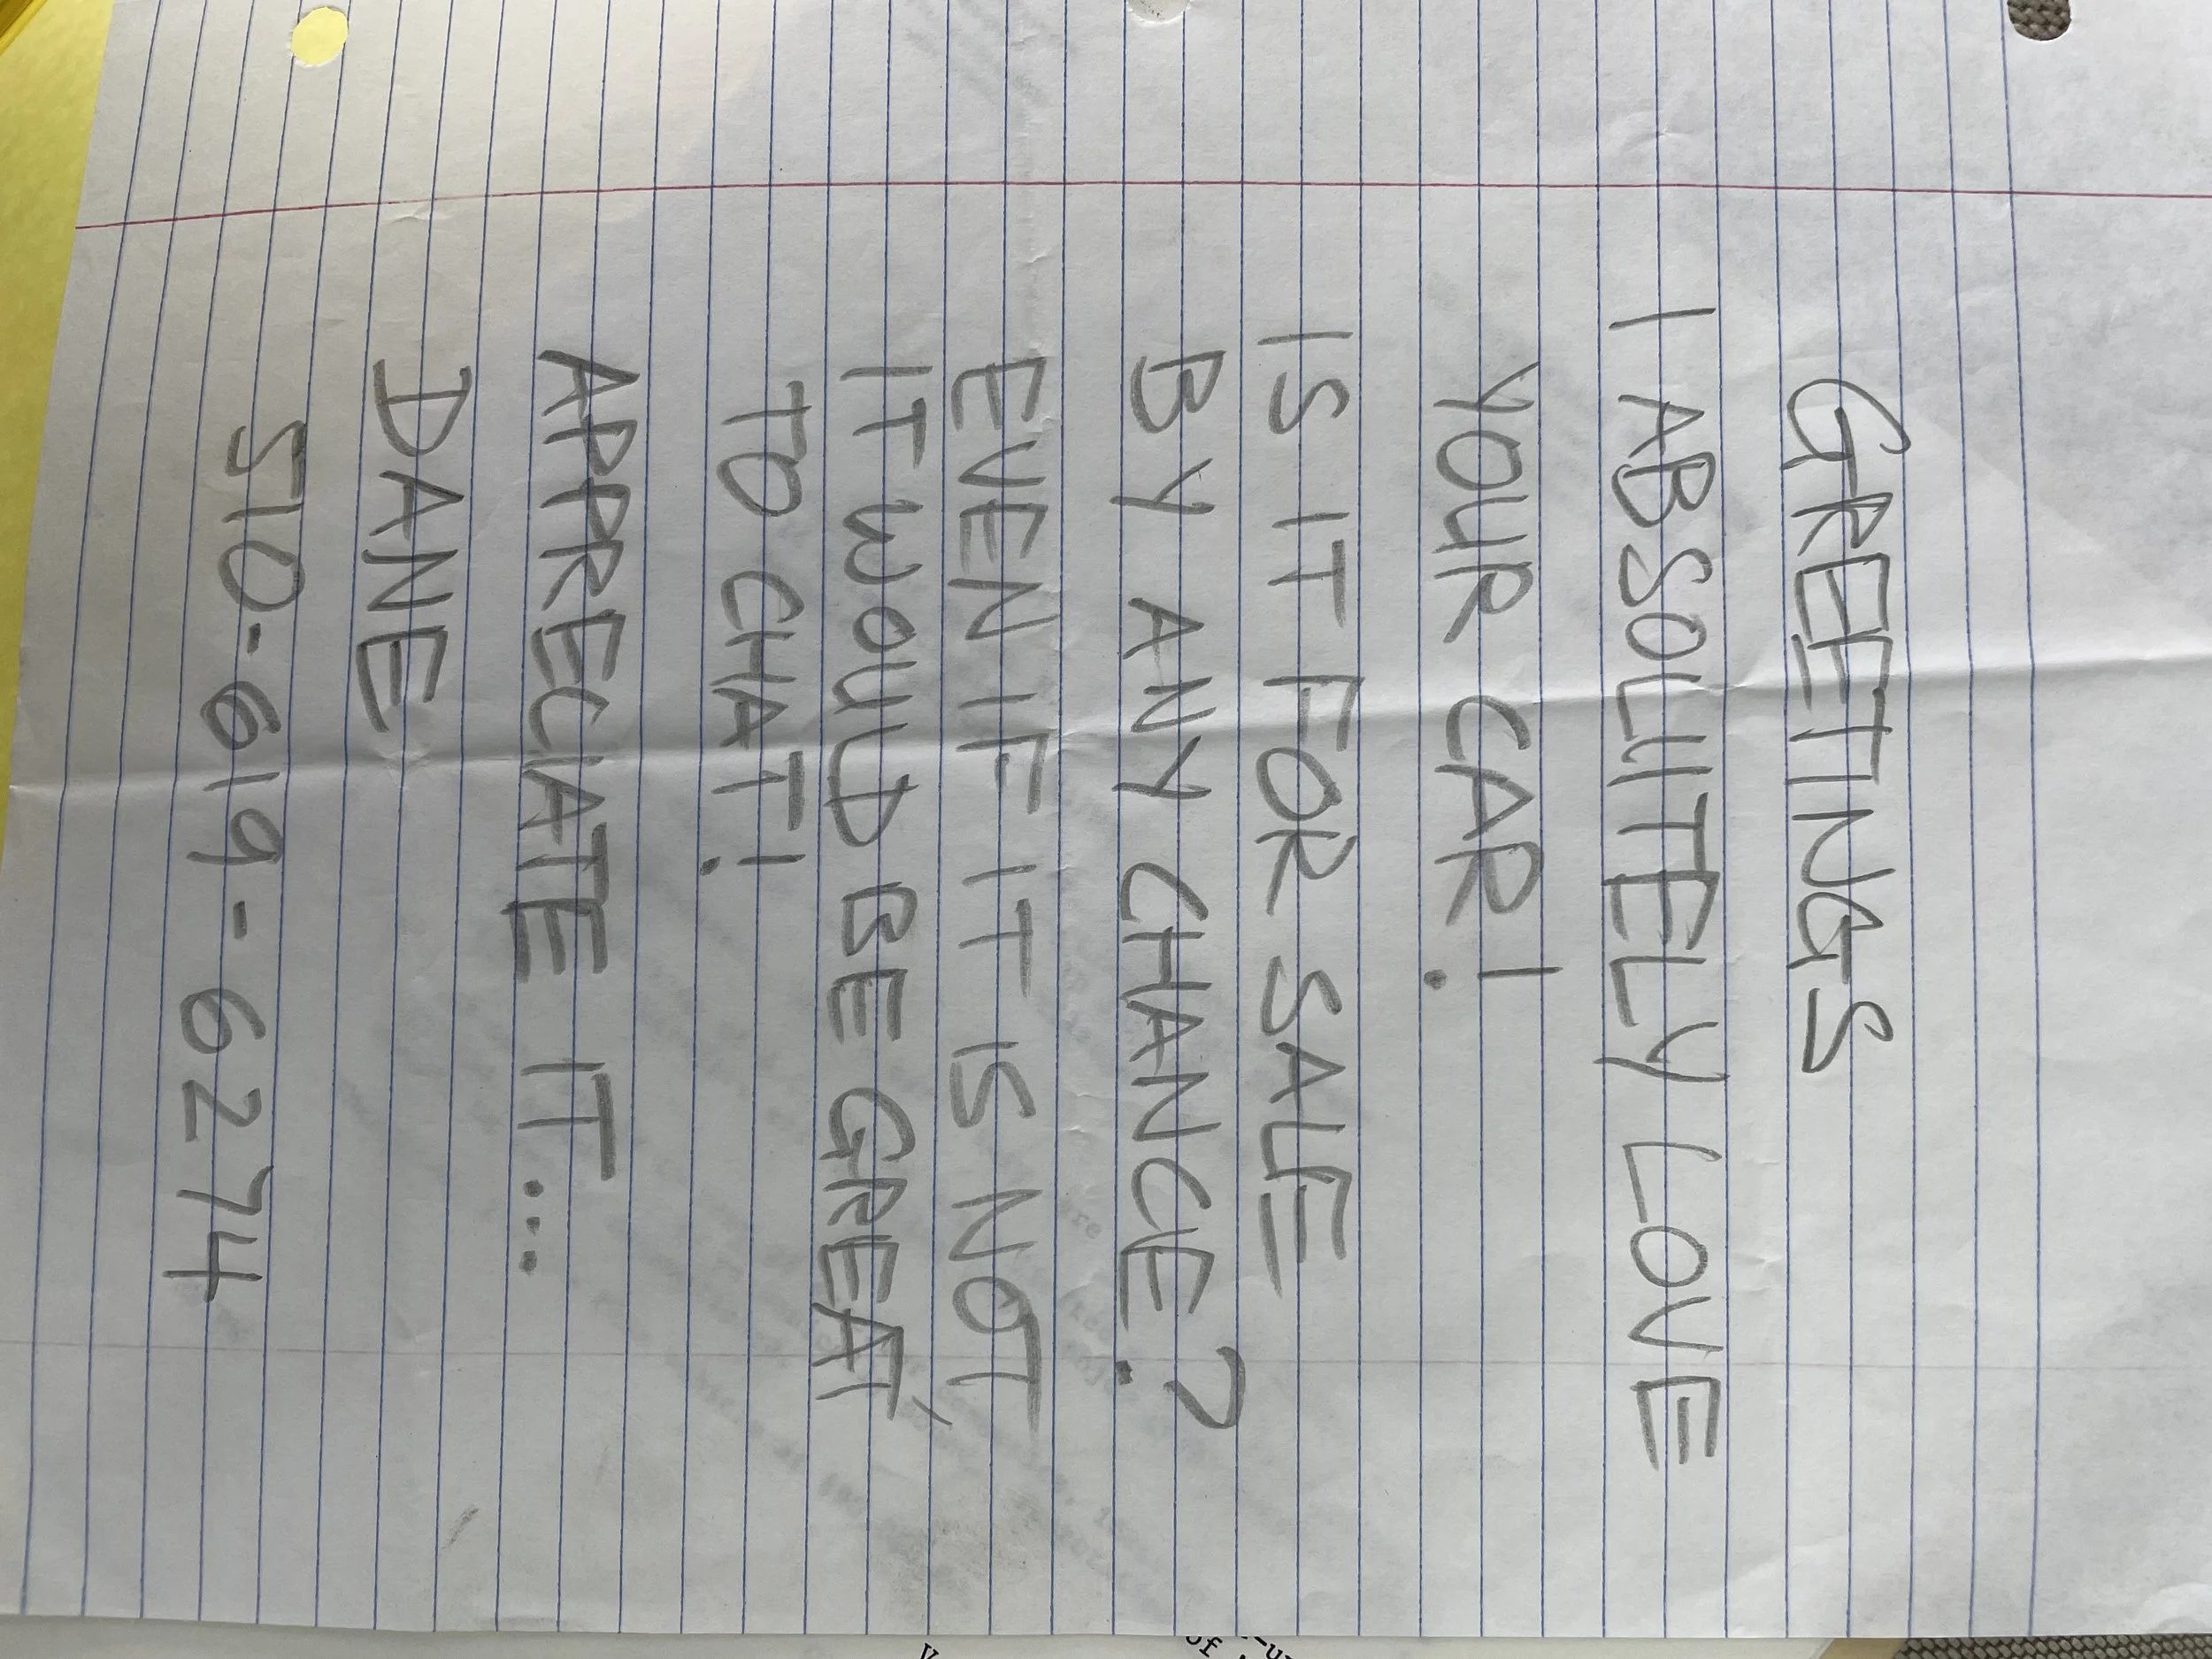 GREETINGS
I ABSOLUTELY LOVE
YOUR CAR!
IS IT FOR SALE
BY ANY CHANCE?
EVEN IF IT IS NOT,
IT WOULD BE GREAT
TO CHAT!
APPRECIATE IT...
DANE
510-619-6274
of